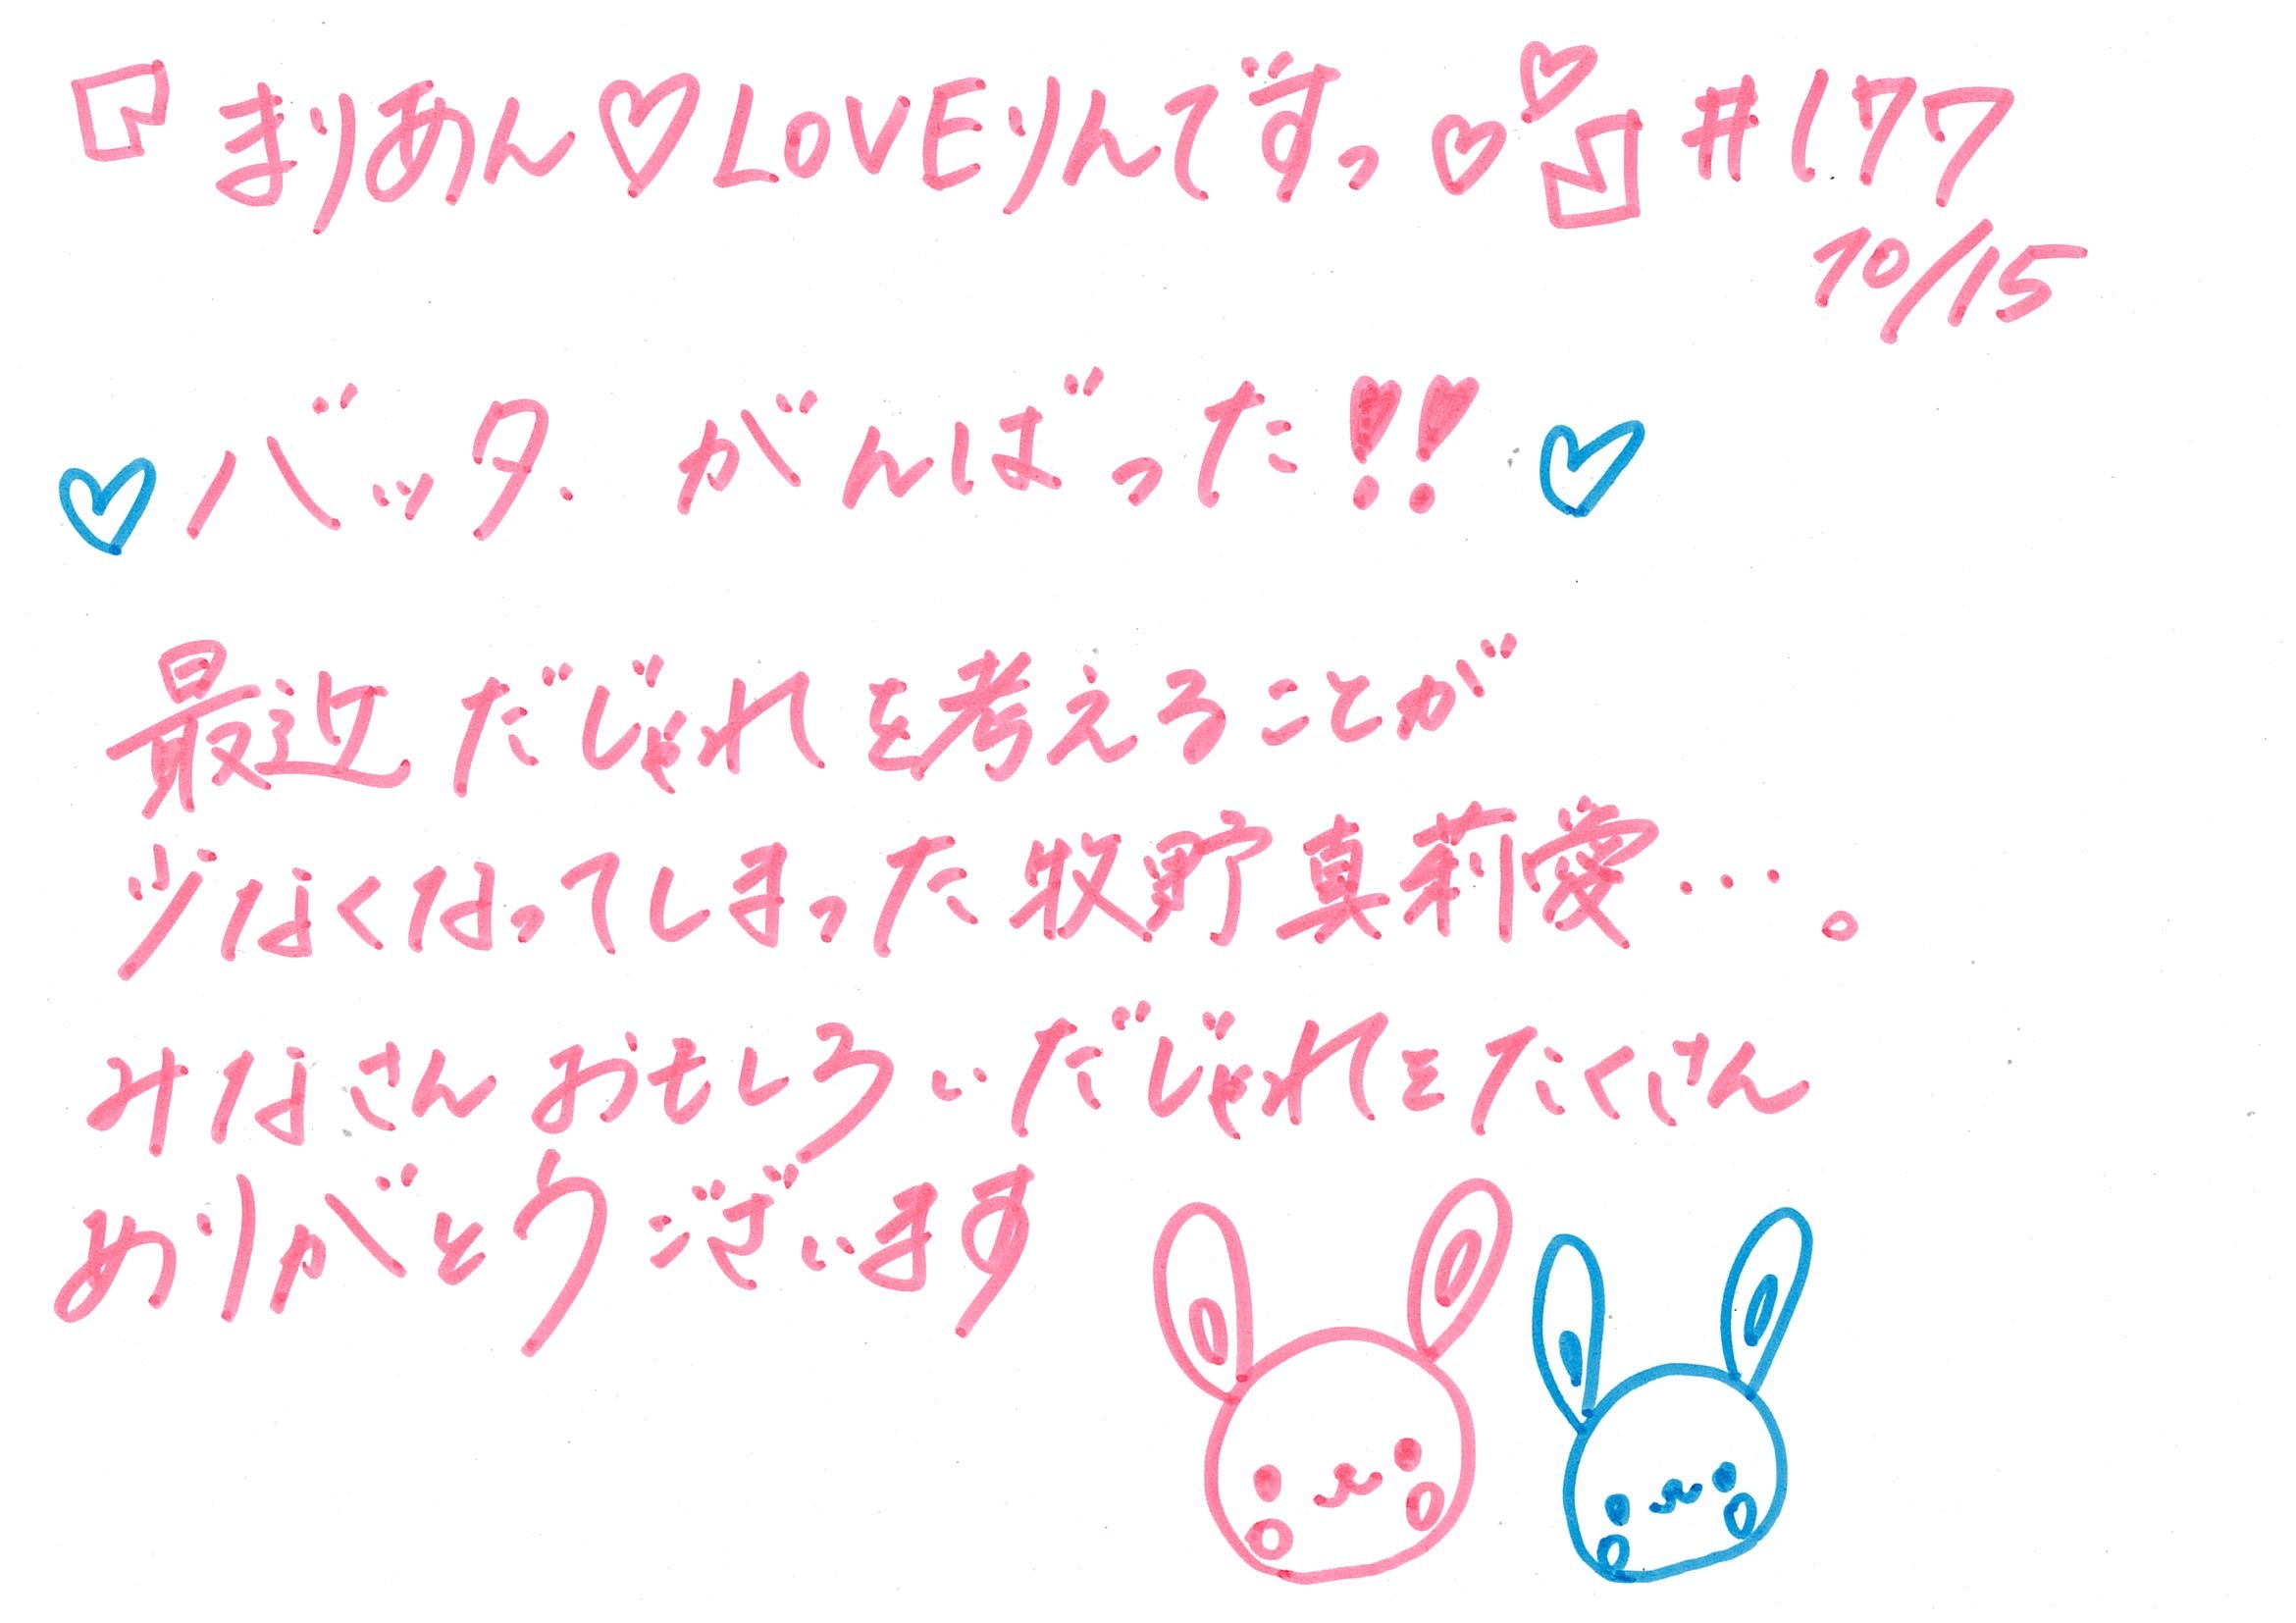 『まりあん♡LOVEりんですっ♡♡』#177
10/15
♡バッタ.がんばった!!♡
最近だじゃれを考えることが
少なくなってしまった牧野真莉愛…。
みなさんおもしろいだじゃれをたくさん
ありがとうございます